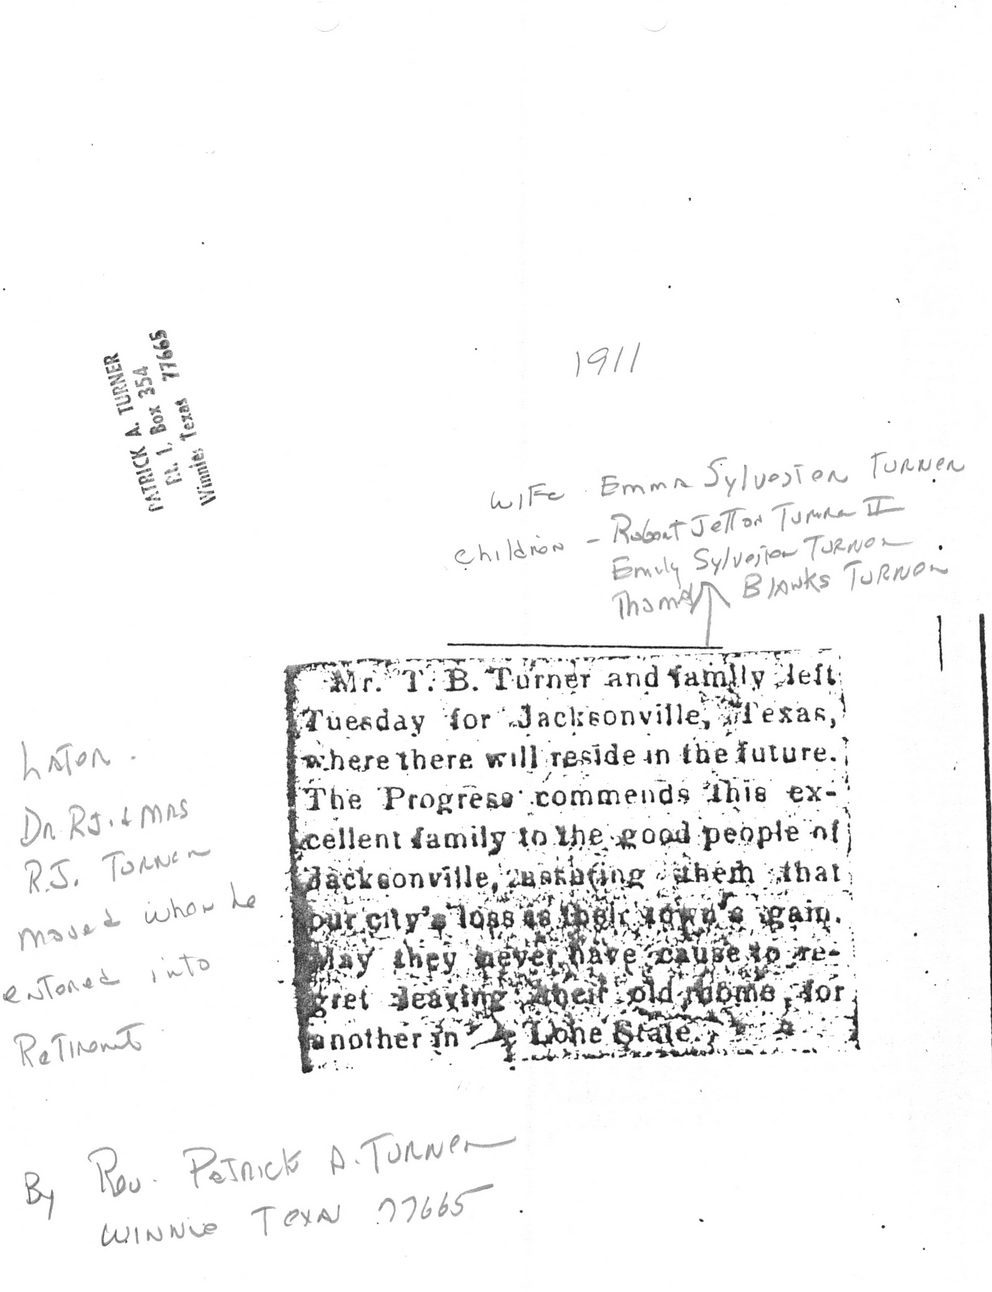 PATRICK A. TURNER
Rt. 1, Box 354
Winnie, Texas 77665
1911
Wife Emma Sylvester Turner
Children - Robert Jetton Turner II
Emily Sylvester Turner
Thomas Blanks Turner
Mr. T. B. Turner and family left
Tuesday for Jacksonville, Texas,
where there will reside in the future.
The Progress commends this ex-
cellent family to the good people of
Jacksonville, assuring them that
our city's loss is their town's gain.
May they never have cause to re-
gret leaving their old home for
another in Lone State.
Later.
Dr RJ. & Mrs
R.J. Turner
moved when he
entered into
Retirement
By Rev. Patrick A. Turner
Winnie Texas 77665